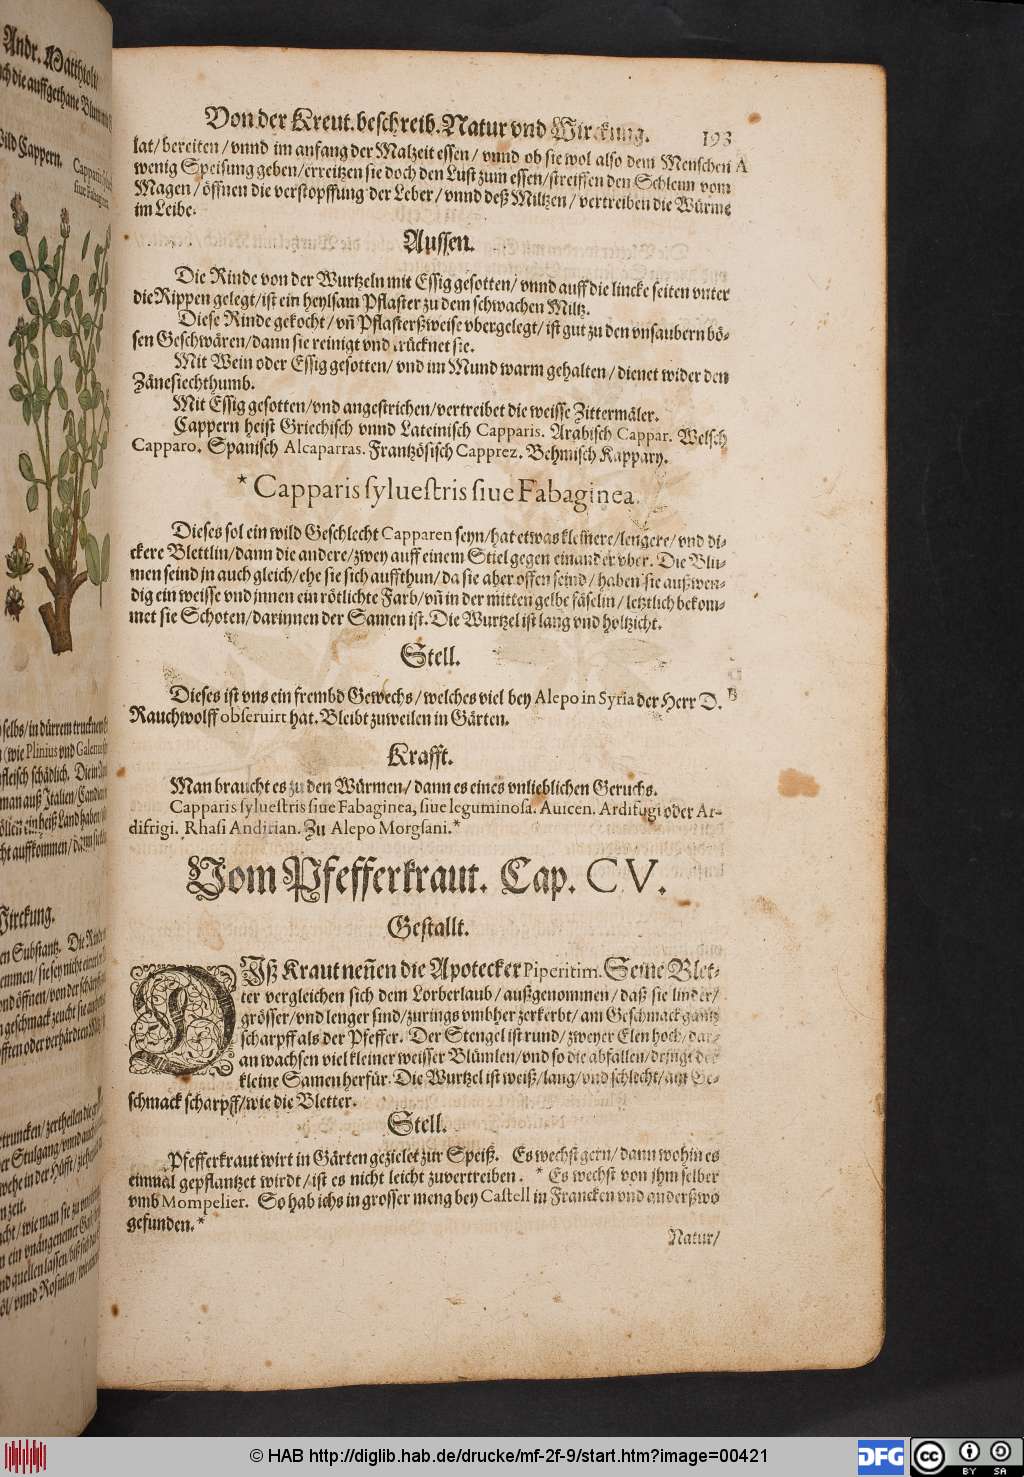 Andr. Matthioli
Wild Cappern.
Von der Kreut. beschreib. Natur vnd Wirckung. 193
lat/ bereiten/ vnnd im anfang der Malzeit essen/ vnnd ob sie wol also dem Menschen A
wenig Speisung geben/ erreitzen sie doch den Lust zum essen/ streiffen den Schleim vom
Magen/ öffnen die verstopffung der Leber/ vnnd deß Miltzen/ vertreiben die Würme
im Leibe.
Aussen.
Die Rinde von der Wurtzeln mit Essig gesotten/ vnnd auff die lincke seiten vnter
die Rippen gelegt/ ist ein heylsam Pflaster zu dem schwachen Miltz.
Diese Rinde gekocht/ vñ Pflasterßweise vbergelegt/ ist gut zu den vnsaubern bö-
sen Geschwären/ dann sie reinigt vnd trücknet sie.
Mit Wein oder Essig gesotten/ vnd im Mund warm gehalten/ dienet wider den
Zänesiechthumb.
Mit Essig gesotten/ vnd angestrichen/ vertreibet die weisse Zittermäler.
Cappern heist Griechisch vnnd Lateinisch Capparis. Arabisch Cappar. Welsch
Capparo. Spanisch Alcaparras. Frantzösisch Capprez. Behmisch Kappary.
* Capparis syluestris siue Fabaginea.
Dieses sol ein wild Geschlecht Capparen seyn/ hat etwas kleinere/ lengere/ vnd di-
ckere Blettlin/ dann die andere/ zwey auff einem Stiel gegen einander vber. Die Blu-
men seind jn auch gleich/ ehe sie sich auffthun/ da sie aber offen seind/ haben sie außwen-
dig ein weisse vnd jnnen ein rötlichte Farb/ vñ in der mitten gelbe fäselin/ letztlich bekom-
met sie Schoten/ darinnen der Samen ist. Die Wurtzel ist lang vnd holtzicht.
Stell.
Dieses ist vns ein frembd Gewechs/ welches viel bey Alepo in Syria der Herr D. B
Rauchwolff obseruirt hat. Bleibt zuweilen in Gärten.
Krafft.
Man braucht es zu den Würmen/ dann es eines vnlieblichen Geruchs.
Capparis syluestris siue Fabaginea, siue leguminosa. Auicen. Ardifugi oder Ar-
difrigi. Rhasi Andirian. Zu Alepo Morgsani. *
Vom Pfefferkraut. Cap. CV.
Gestallt.
DIß Kraut neñen die Apotecker Piperitim. Seine Blet-
ter vergleichen sich dem Lorberlaub/ außgenommen/ daß sie linder/
grösser/ vnd lenger sind/ zurings vmbher zerkerbt/ am Geschmack gantz
scharpff als der Pfeffer. Der Stengel ist rund/ zweyer Elen hoch/ dar-
an wachsen viel kleiner weisser Blümlen/ vnd so die abfallen/ dringt der
kleine Samen herfür. Die Wurtzel ist weiß/ lang/ vnd schlecht/ am Ge-
schmack scharpff/ wie die Bletter.
Stell.
Pfefferkraut wirt in Gärten gezielet zur Speiß. Es wechst gern/ dann wohin es
einmal gepflantzet wirdt/ ist es nicht leicht zuvertreiben. * Es wechst von jhm selber
vmb Mompelier. So hab ichs in grosser meng bey Castell in Francken vnd anderßwo
gefunden. *
Natur/
© HAB http://diglib.hab.de/drucke/mf-2f-9/start.htm?image=00421
DFG
cc BY SA